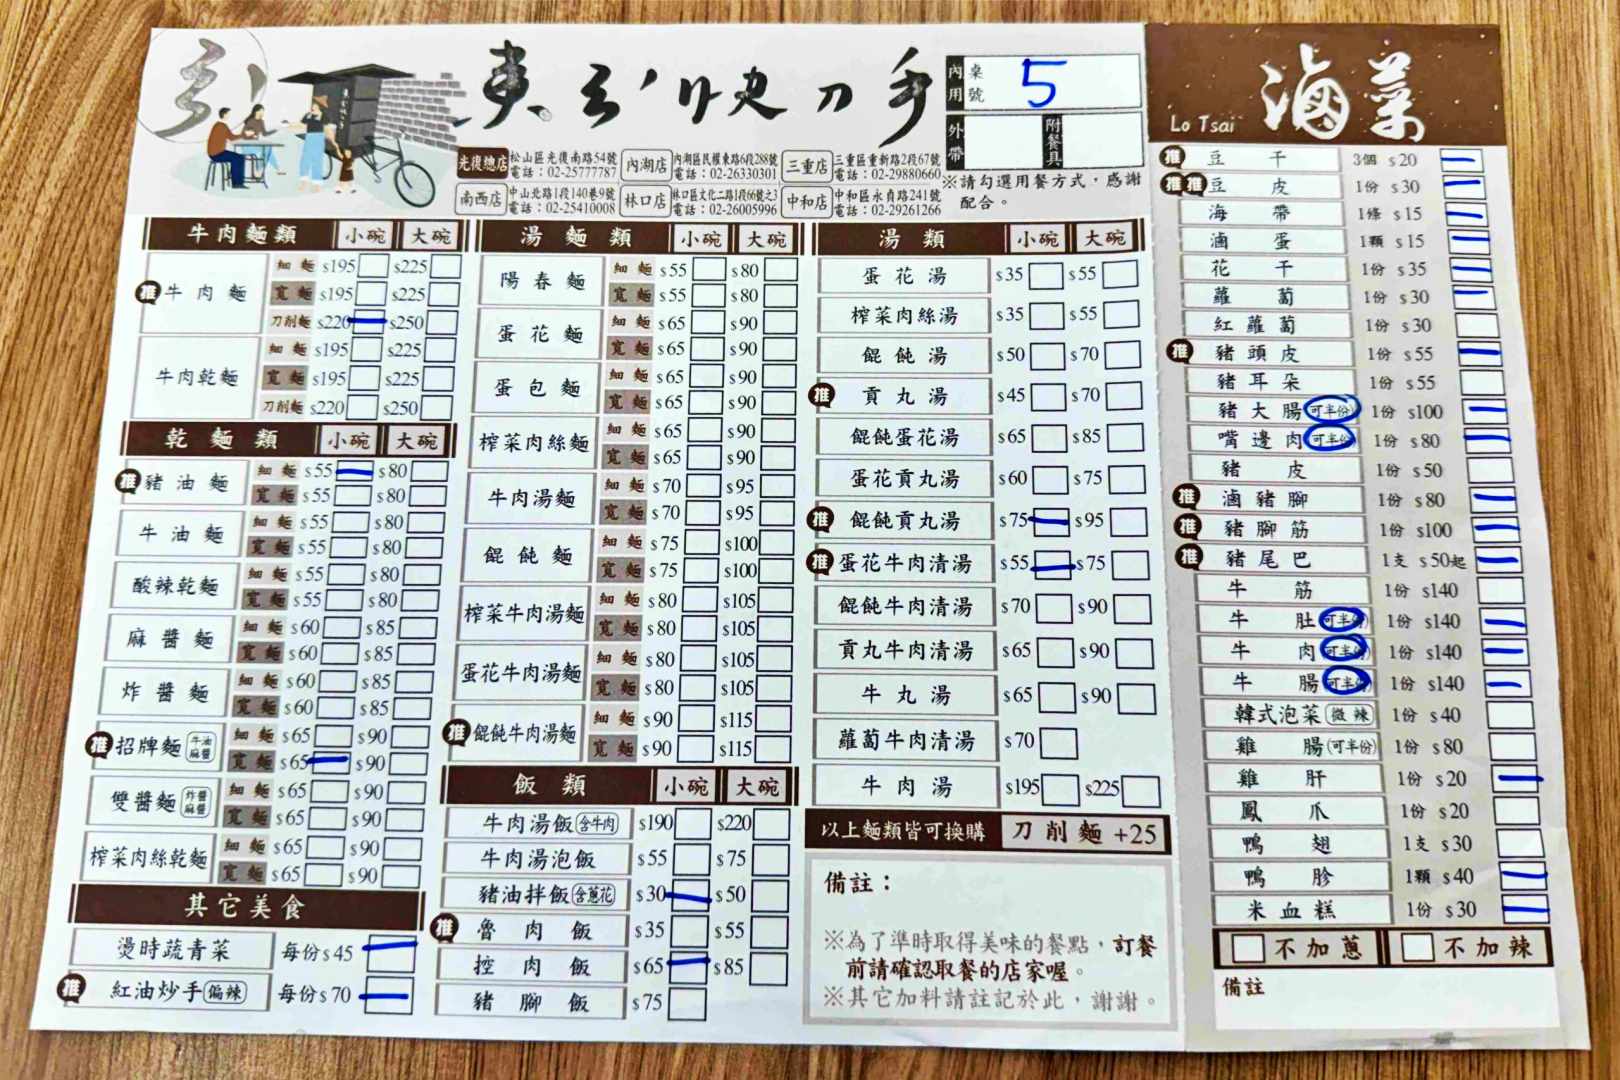 東引小吃快刀手
內用 桌號 5
外帶 附餐具
光復總店 松山區光復南路54號 電話：02-25777787
內湖店 內湖區民權東路6段288號 電話：02-26330301
三重店 三重區重新路2段67號 電話：02-29880660
南西店 中山北路1段140巷9號 電話：02-25410008
林口店 林口區文化二路1段66號之3 電話：02-26005996
中和店 中和區永貞路241號 電話：02-29261266
※請勾選用餐方式，感謝
配合。
牛肉麵類 小碗 大碗
推 牛肉麵 細麵 $195 $225
寬麵 $195 $225
刀削麵 $220 $250
牛肉乾麵 細麵 $195 $225
寬麵 $195 $225
刀削麵 $220 $250
乾麵類 小碗 大碗
推 豬油麵 細麵 $55 $80
寬麵 $55 $80
牛油麵 細麵 $55 $80
寬麵 $55 $80
酸辣乾麵 細麵 $55 $80
寬麵 $55 $80
麻醬麵 細麵 $60 $85
寬麵 $60 $85
炸醬麵 細麵 $60 $85
寬麵 $60 $85
推 招牌麵 牛油麻醬 細麵 $65 $90
寬麵 $65 $90
雙醬麵 炸醬麻醬 細麵 $65 $90
寬麵 $65 $90
榨菜肉絲乾麵 細麵 $65 $90
寬麵 $65 $90
其它美食
燙時蔬青菜 每份$45
推 紅油炒手 偏辣 每份$70
湯麵類 小碗 大碗
陽春麵 細麵 $55 $80
寬麵 $55 $80
蛋花麵 細麵 $65 $90
寬麵 $65 $90
蛋包麵 細麵 $65 $90
寬麵 $65 $90
榨菜肉絲麵 細麵 $65 $90
寬麵 $65 $90
牛肉湯麵 細麵 $70 $95
寬麵 $70 $95
餛飩麵 細麵 $75 $100
寬麵 $75 $100
榨菜牛肉湯麵 細麵 $80 $105
寬麵 $80 $105
蛋花牛肉湯麵 細麵 $80 $105
寬麵 $80 $105
推 餛飩牛肉湯麵 細麵 $90 $115
寬麵 $90 $115
飯類 小碗 大碗
牛肉湯飯(含牛肉) $190 $220
牛肉湯泡飯 $55 $75
豬油拌飯(含蔥花) $30 $50
推 魯肉飯 $35 $55
控肉飯 $65 $85
豬腳飯 $75
湯類 小碗 大碗
蛋花湯 $35 $55
榨菜肉絲湯 $35 $55
餛飩湯 $50 $70
推 貢丸湯 $45 $70
餛飩蛋花湯 $65 $85
蛋花貢丸湯 $60 $75
推 餛飩貢丸湯 $75 $95
推 蛋花牛肉清湯 $55 $75
餛飩牛肉清湯 $70 $90
貢丸牛肉清湯 $65 $90
牛丸湯 $65 $90
蘿蔔牛肉清湯 $70
牛肉湯 $195 $225
以上麵類皆可換購 刀削麵+25
備註：
※為了準時取得美味的餐點，訂餐
前請確認取餐的店家喔。
※其它加料請註記於此，謝謝。
Lo Tsai 滷菜
推 豆干 3個 $20
推 推 豆皮 1份 $30
海帶 1條 $15
滷蛋 1顆 $15
花干 1份 $35
蘿蔔 1份 $30
紅蘿蔔 1份 $30
推 豬頭皮 1份 $55
豬耳朵 1份 $55
豬大腸(可半份) 1份 $100
嘴邊肉(可半份) 1份 $80
豬皮 1份 $50
推 滷豬腳 1份 $80
推 豬腳筋 1份 $100
推 豬尾巴 1支 $50起
牛筋 1份 $140
牛肚(可半份) 1份 $140
牛肉(可半份) 1份 $140
牛腸(可半份) 1份 $140
韓式泡菜 微辣 1份 $40
雞腸(可半份) 1份 $80
雞肝 1份 $20
鳳爪 1份 $20
鴨翅 1支 $30
鴨胗 1顆 $40
米血糕 1份 $30
不加蔥 不加辣
備註